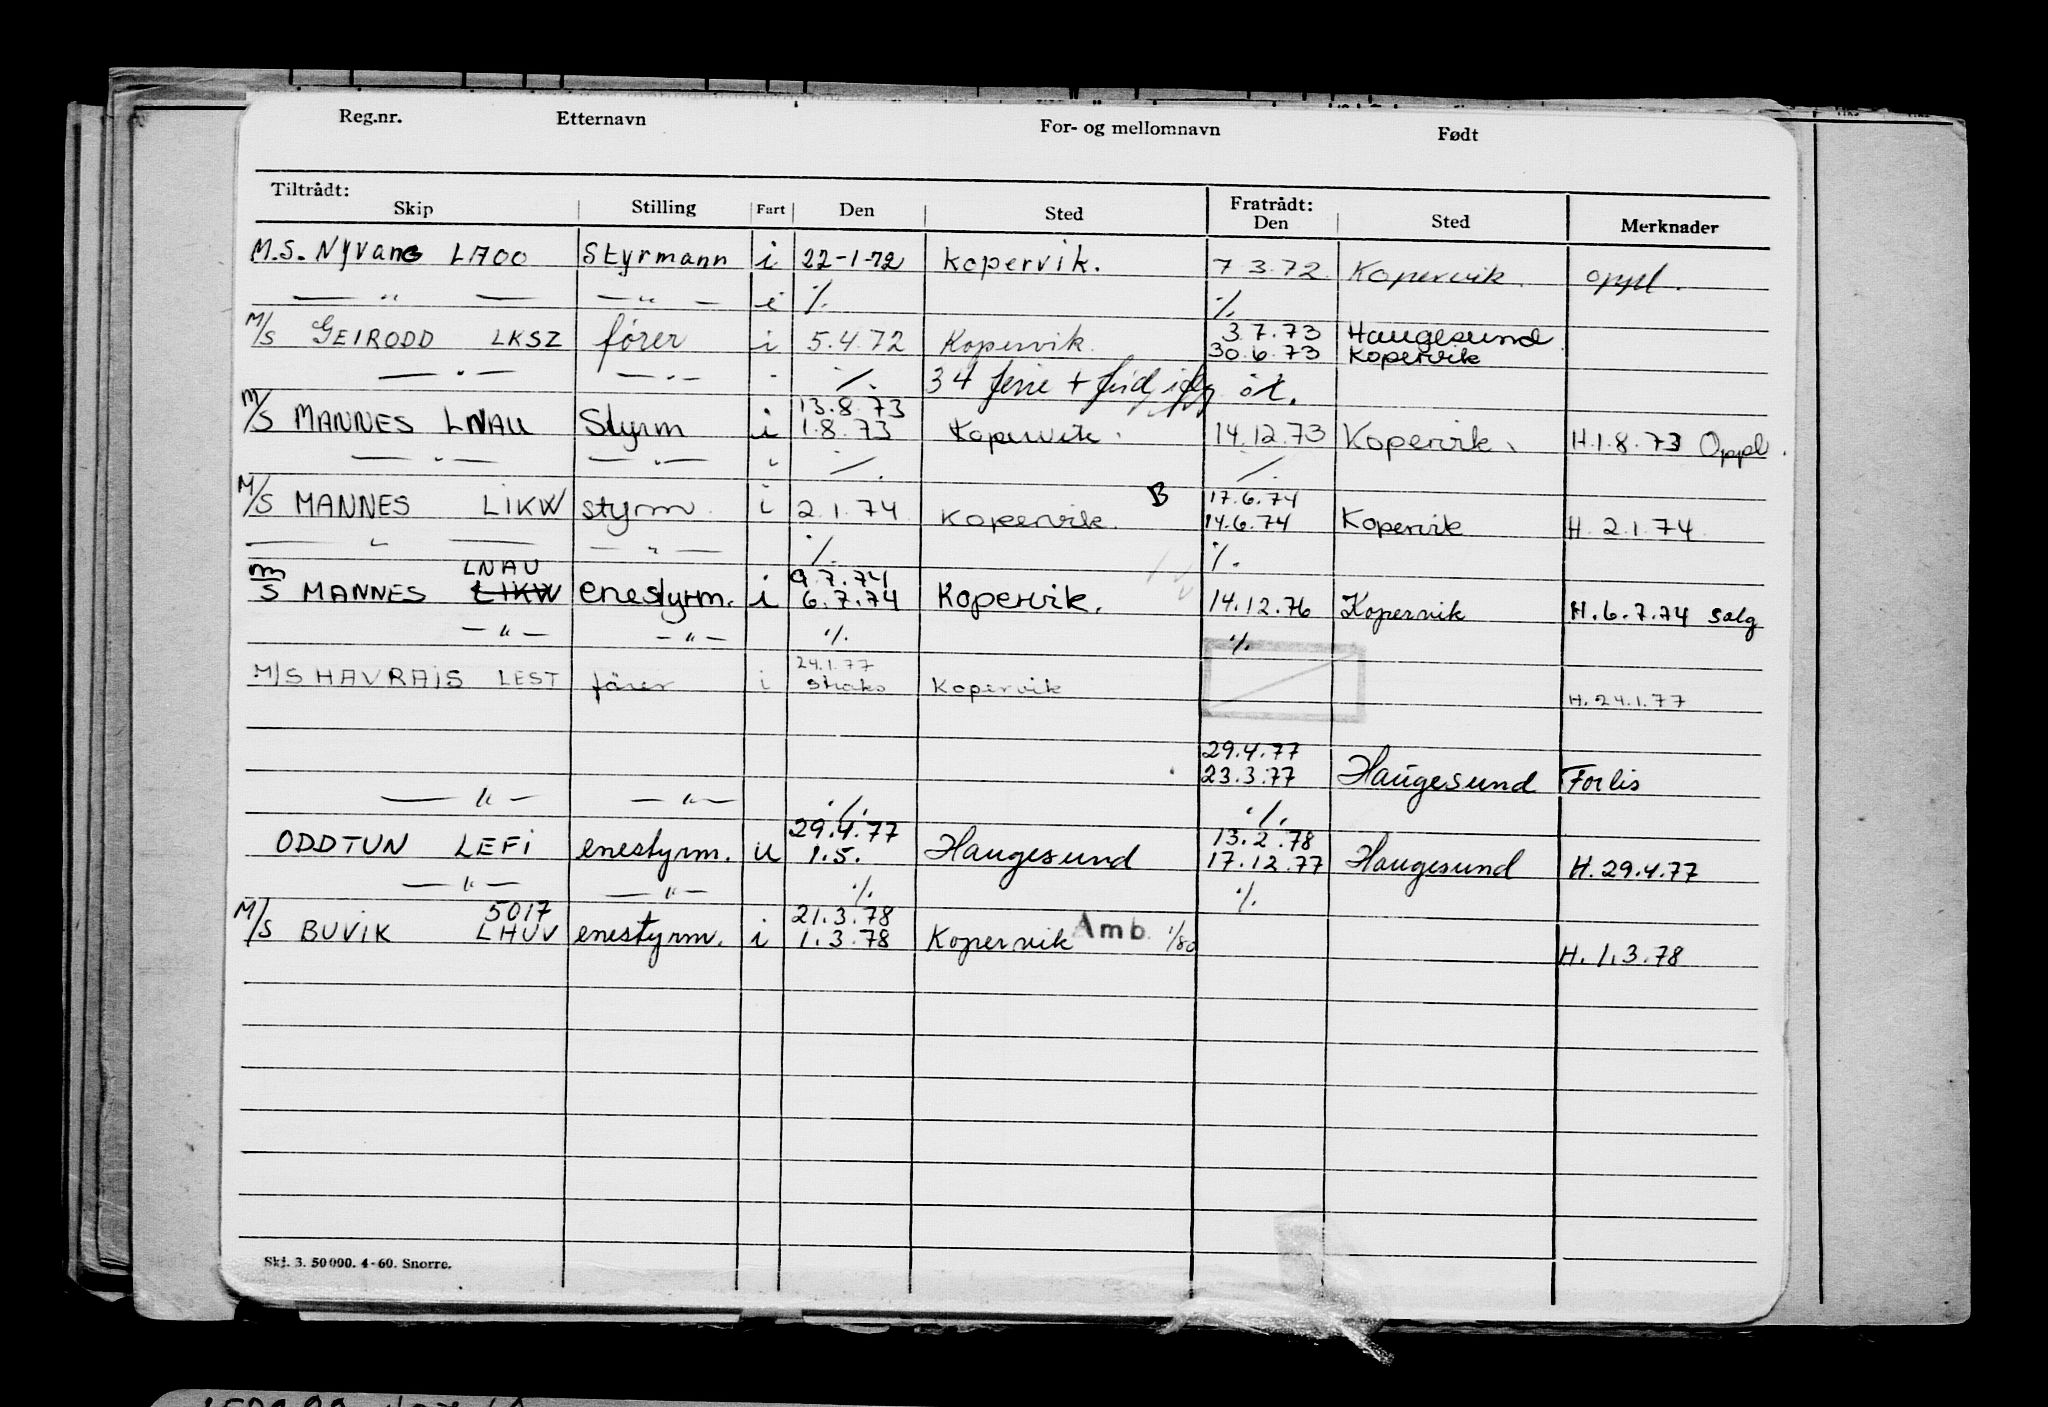 Reg.nr. Etternavn For- og mellomnavn Født
Tiltrådt: Fratrådt:
Skip Stilling Fart Den Sted Den Sted Merknader
M.S. Nyvang LAOO Styrmann i 22-1-72 Kopervik. 7.3.72 Kopervik. oppl.
— " — — " — i ./. ./.
M/S GEIRODD LKSZ fører i 5.4.72 Kopervik. 3.7.73 Haugesund
30.6.73 Kopervik
— " — — " — " ./. 34 ferie + frid.
13.8.73
M/S MANNES LNAU Styrm i 1.8.73 Kopervik. 14.12.73 Kopervik. H.1.8.73 Oppl.
— " — — " — " ./. ./.
B 17.6.74
M/S MANNES LIKW styrm. i 2.1.74 Kopervik. 14.6.74 Kopervik H. 2.1.74
— " — — " — ./. ./.
LNAU 9.7.74
M/S MANNES LIKW enestyrm. i 6.7.74 Kopervik. 14.12.76 Kopervik H. 6.7.74 salg
— " — — " — ./. ./.
24.1.77
M/S HAVRAIS LEST fører i straks Kopervik H. 24.1.77
29.4.77
23.3.77 Haugesund Forlis
— " — — " — ./. ./.
29.4.77 13.2.78
ODDTUN LEFI enestyrm. u 1.5. Haugesund 17.12.77 Haugesund H. 29.4.77
— " — — " — ./. ./.
5017 21.3.78
M/S BUVIK LHUV enestyrm. i 1.3.78 Kopervik Amb 1/80 H. 1.3.78
Skj. 3. 50 000. 4-60. Snorre.